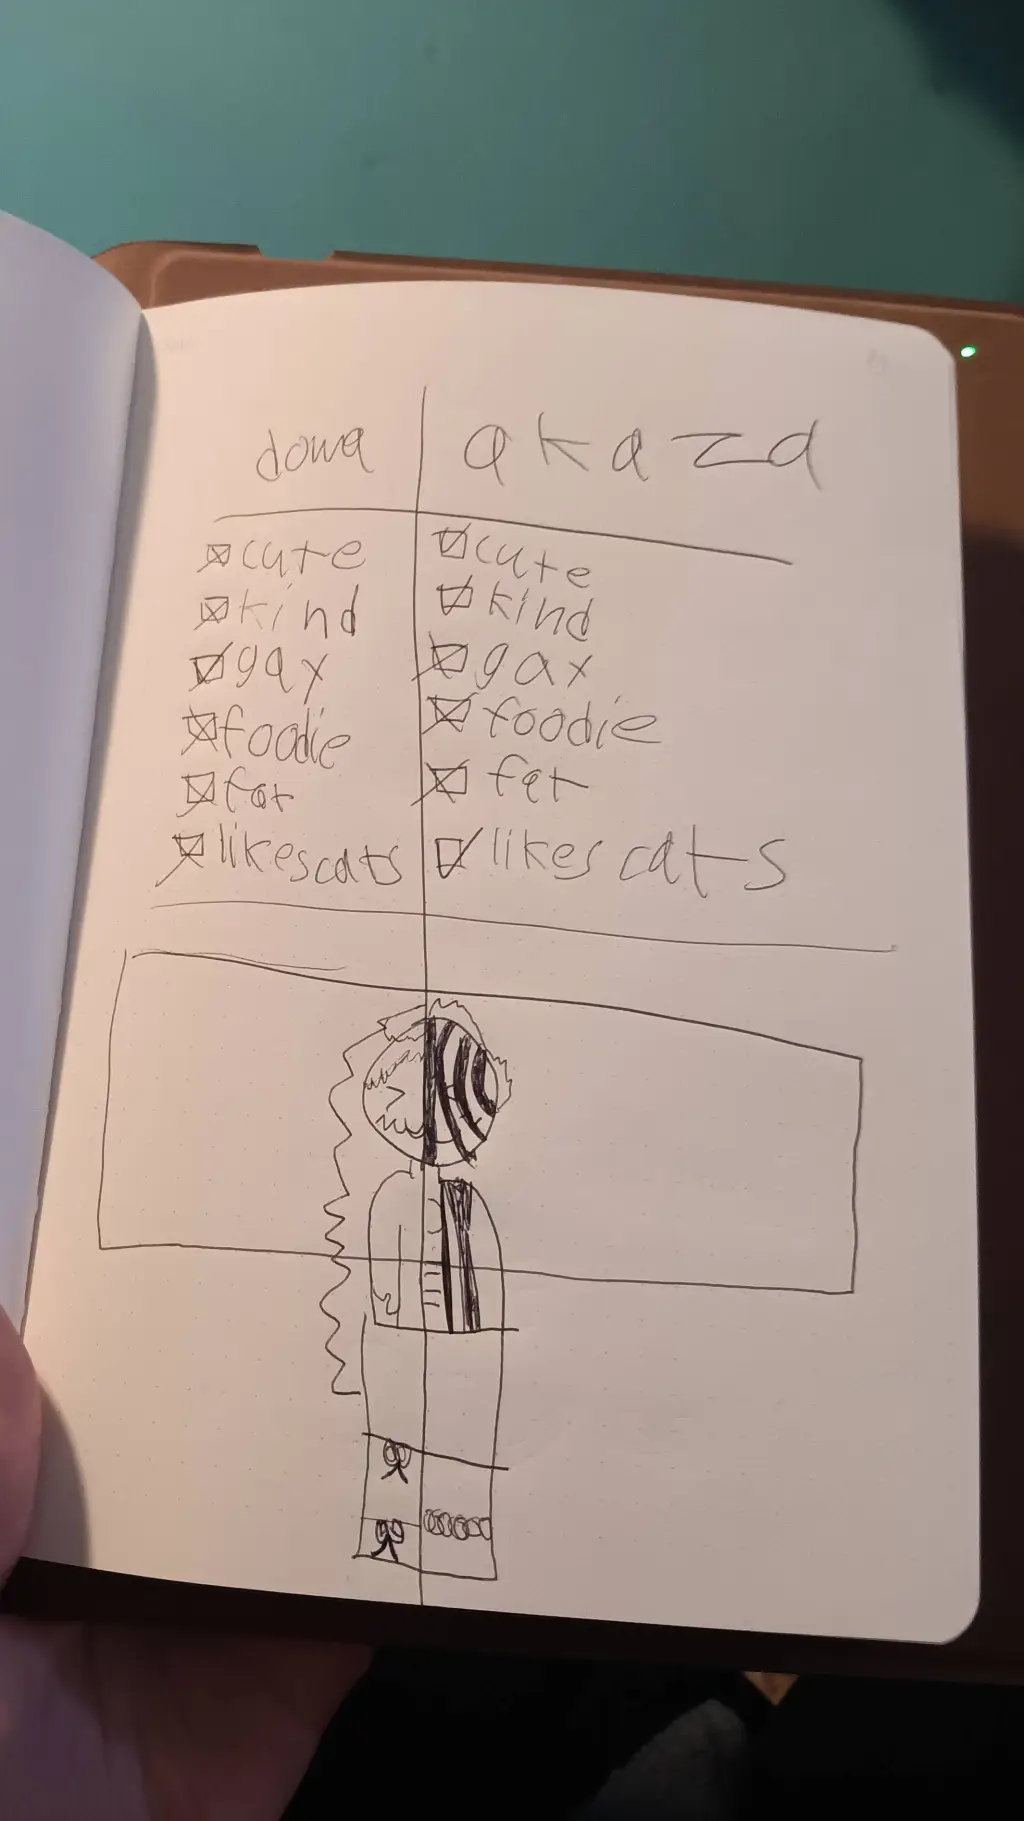 dowa akaza
☒ cute ☑ cute
☒ kind ☑ kind
☑ gay ☒ gay
☒ foodie ☒ foodie
☒ fat ☒ fat
☒ likes cats ☑ likes cats